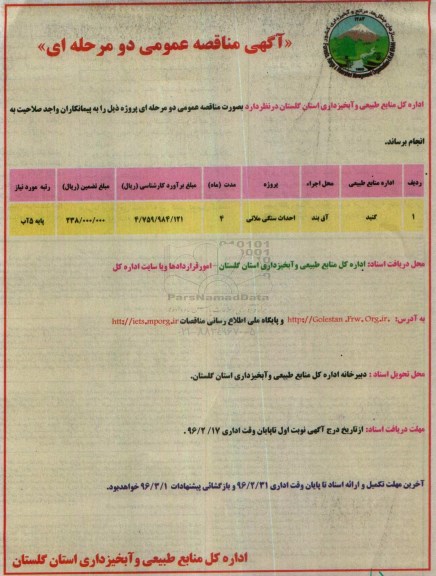 «آگهی مناقصه عمومی دو مرحله ای»
اداره کل منابع طبیعی و آبخیزداری استان گلستان در نظر دارد بصورت مناقصه عمومی دو مرحله ای پروژه ذیل را به پیمانکاران واجد صلاحیت به
انجام برساند.
ردیف اداره منابع طبیعی محل اجراء پروژه مدت (ماه) مبلغ برآورد کارشناسی (ریال) مبلغ تضمین (ریال) رتبه مورد نیاز
۱ گنبد آق بند احداث سنگی ملاتی ۴ ۴/۷۵۹/۹۸۴/۱۲۱ ۲۳۸/۰۰۰/۰۰۰ پایه ۵ آب
محل دریافت اسناد: اداره کل منابع طبیعی و آبخیزداری استان گلستان - امور قراردادها و یا سایت اداره کل
به آدرس: http://Golestan .Frw. Org.ir. و پایگاه ملی اطلاع رسانی مناقصات http://iets.mporg.ir
ParsNamadData
محل تحویل اسناد : دبیرخانه اداره کل منابع طبیعی و آبخیزداری استان گلستان.
مهلت دریافت اسناد: از تاریخ درج آگهی نوبت اول تا پایان وقت اداری ۹۶/۲/۱۷ .
آخرین مهلت تکمیل و ارائه اسناد تا پایان وقت اداری ۹۶/۲/۳۱ و بازگشائی پیشنهادات ۹۶/۳/۱ خواهد بود.
اداره کل منابع طبیعی و آبخیزداری استان گلستان